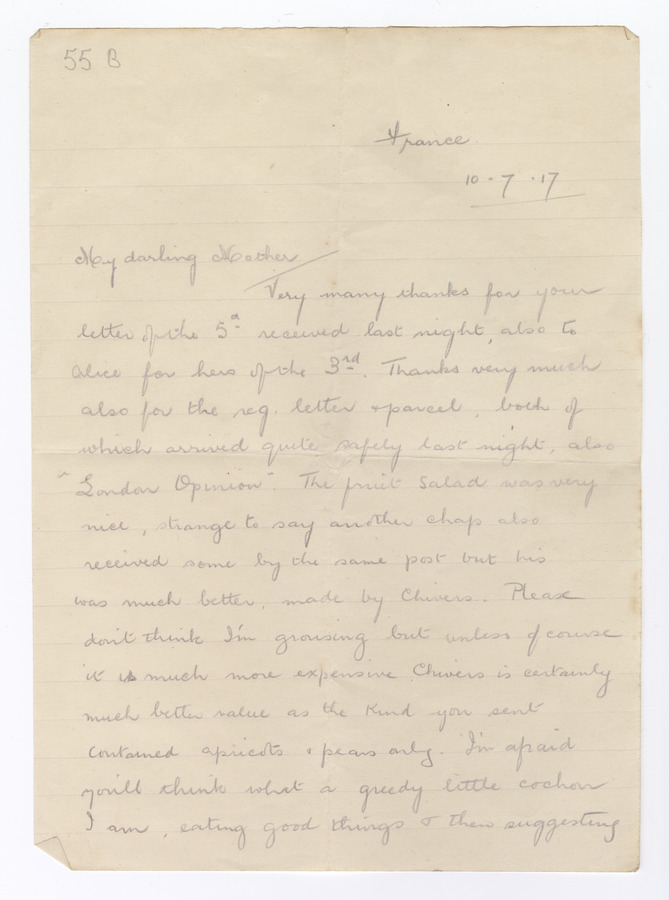 55 B
France.
10 - 7 - 17
My darling Mother
Very many thanks for your
letter of the 5th received last night, also to
Alice for hers of the 3rd. Thanks very much
also for the reg. letter & parcel, both of
which arrived quite safely last night, also
"London Opinion". The fruit salad was very
nice, strange to say another chap also
received some by the same post but his
was much better, made by Chivers. Please
don't think I'm grousing but unless of course
it is much more expensive Chivers is certainly
much better value as the kind you sent
contained apricots & pears only. I'm afraid
you'll think what a greedy little cochon
I am, eating good things & then suggesting